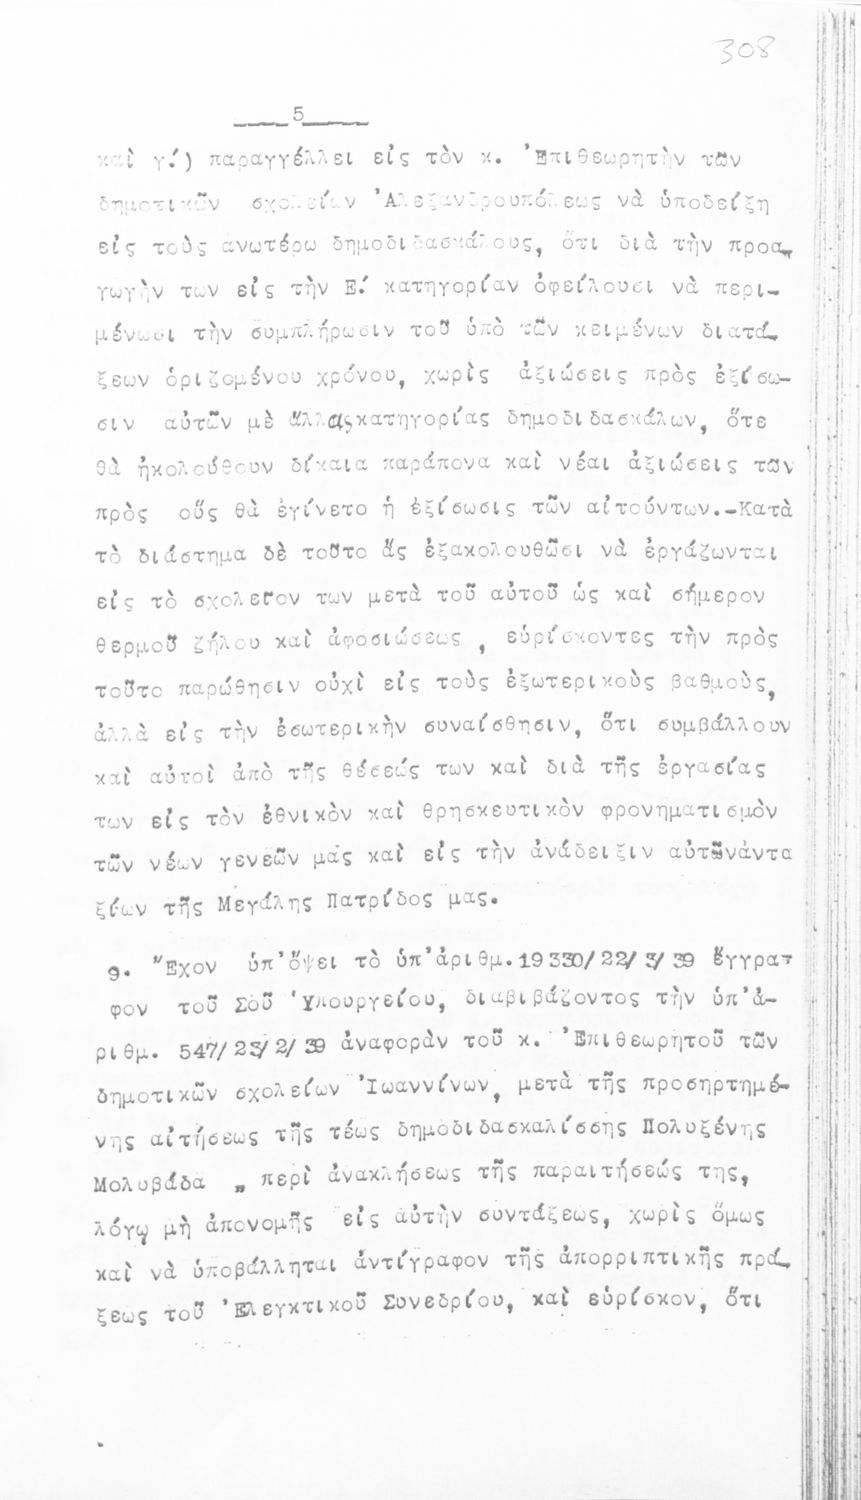 308
5
καὶ γ΄.) παραγγέλλει εἰς τὸν κ. Ἐπιθεωρητὴν τῶν
δημοτικῶν σχολείων Ἀλεξανδρουπόλεως νὰ ὑποδείξη
εἰς τοὺς ἀνωτέρω δημοδιδασκάλους, ὅτι διὰ τὴν προα-
γωγὴν των εἰς τὴν Ε΄. κατηγορίαν ὀφείλουσι νὰ περι-
μένωσι τὴν συμπλήρωσιν τοῦ ὑπὸ τῶν κειμένων διατά-
ξεων ὁριζομένου χρόνου, χωρὶς ἀξιώσεις πρὸς ἐξίσω-
σιν αὐτῶν μὲ ἄλλας κατηγορίας δημοδιδασκάλων, ὅτε
θὰ ἠκολούθουν δίκαια παράπονα καὶ νέαι ἀξιώσεις τῶν
πρὸς οὓς θὰ ἐγίνετο ἡ ἐξίσωσις τῶν αἰτούντων.-Κατὰ
τὸ διάστημα δὲ τοῦτο ἄς ἐξακολουθῶσι νὰ ἐργάζωνται
εἰς τὸ σχολεῖον των μετὰ τοῦ αὐτοῦ ὡς καὶ σήμερον
θερμοῦ ζήλου καὶ ἀφοσιώσεως , εὑρίσκοντες τὴν πρὸς
τοῦτο παρώθησιν οὐχὶ εἰς τοὺς ἐξωτερικοὺς βαθμοὺς,
ἀλλὰ εἰς τὴν ἐσωτερικὴν συναίσθησιν, ὅτι συμβάλλουν
καὶ αὐτοὶ ἀπὸ τῆς θέσεώς των καὶ διὰ τῆς ἐργασίας
των εἰς τὸν ἐθνικὸν καὶ θρησκευτικὸν φρονηματισμὸν
τῶν νέων γενεῶν μας καὶ εἰς τὴν ἀνάδειξιν αὐτῶνἀντα
ξίων τῆς Μεγάλης Πατρίδος μας.
9. Ἔχον ὑπ'ὄψει τὸ ὑπ'ἀριθμ.19330/22/3/39 ἔγγρα-
φον τοῦ Σοῦ Ὑπουργείου, διαβιβάζοντος τὴν ὑπ'ἀ-
ριθμ. 547/23/2/39 ἀναφορὰν τοῦ κ. Ἐπιθεωρητοῦ τῶν
δημοτικῶν σχολείων Ἰωαννίνων, μετὰ τῆς προσηρτημέ-
νης αἰτήσεως τῆς τέως δημοδιδασκαλίσσης Πολυξένης
Μολυβάδα „ περὶ ἀνακλήσεως τῆς παραιτήσεώς της,
λόγῳ μὴ ἀπονομῆς εἰς αὐτὴν συντάξεως, χωρὶς ὅμως
καὶ νὰ ὑποβάλληται ἀντίγραφον τῆς ἀπορριπτικῆς πρά-
ξεως τοῦ Ἐλεγκτικοῦ Συνεδρίου, καὶ εὑρίσκον, ὅτι